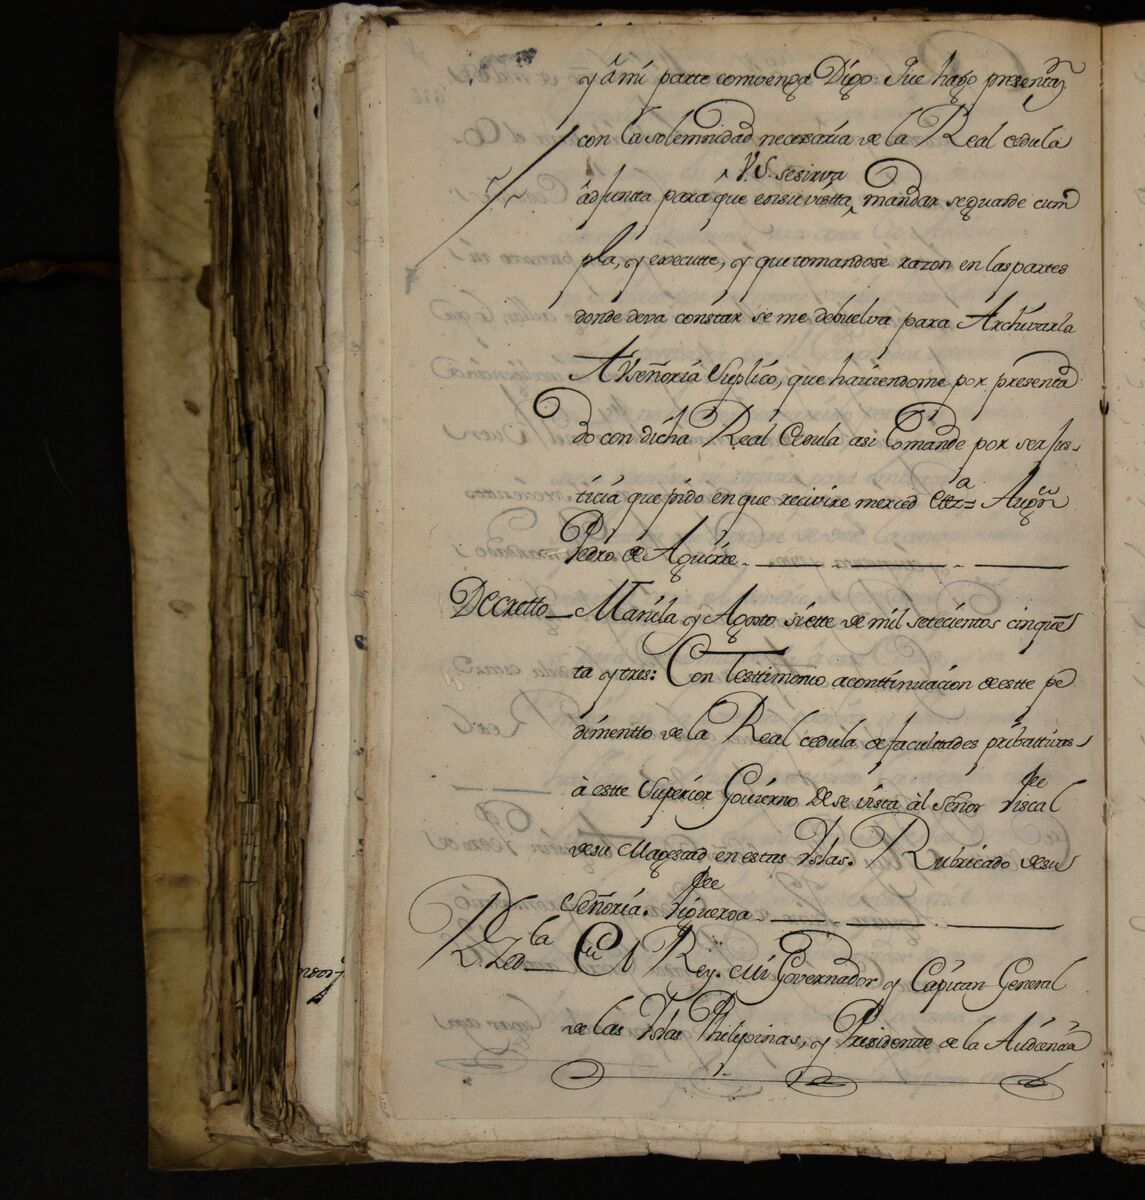 y à mi parte comvenga Digo: Que hago presentaz.on
con la solemnidad necessaria de la Real cedula
V. S. se sirva
adjunta para que en su vistta, mandar se guarde cum
pla, y executte, y que tomandose razon en las partes
donde deva constar se me debuelva para Archivarla
A Vseñoria Suplico, que haviendome por presenta
do con dicha Real Cedula asi lo mande por ser jus-
ticia que pido en que recivire merced ettz.a = Augn
Pedro de Aguirre
Decretto Manila y Agosto siette de mil setecientos cinquen
ta y tres: Con testtimonio a conttinuacion de estte pe
dimentto de la Real cedula de facultades pribattivas
à estte Superior Govierno Dese vista àl señor fiscal
de su Magestad en estas Yslas. Rubricado de su
Señoria. figueroa
R.l Zed.la El Rey. Mi Governador y Capitan General
de las Yslas Philipinas, y Presidente de la Audiencia